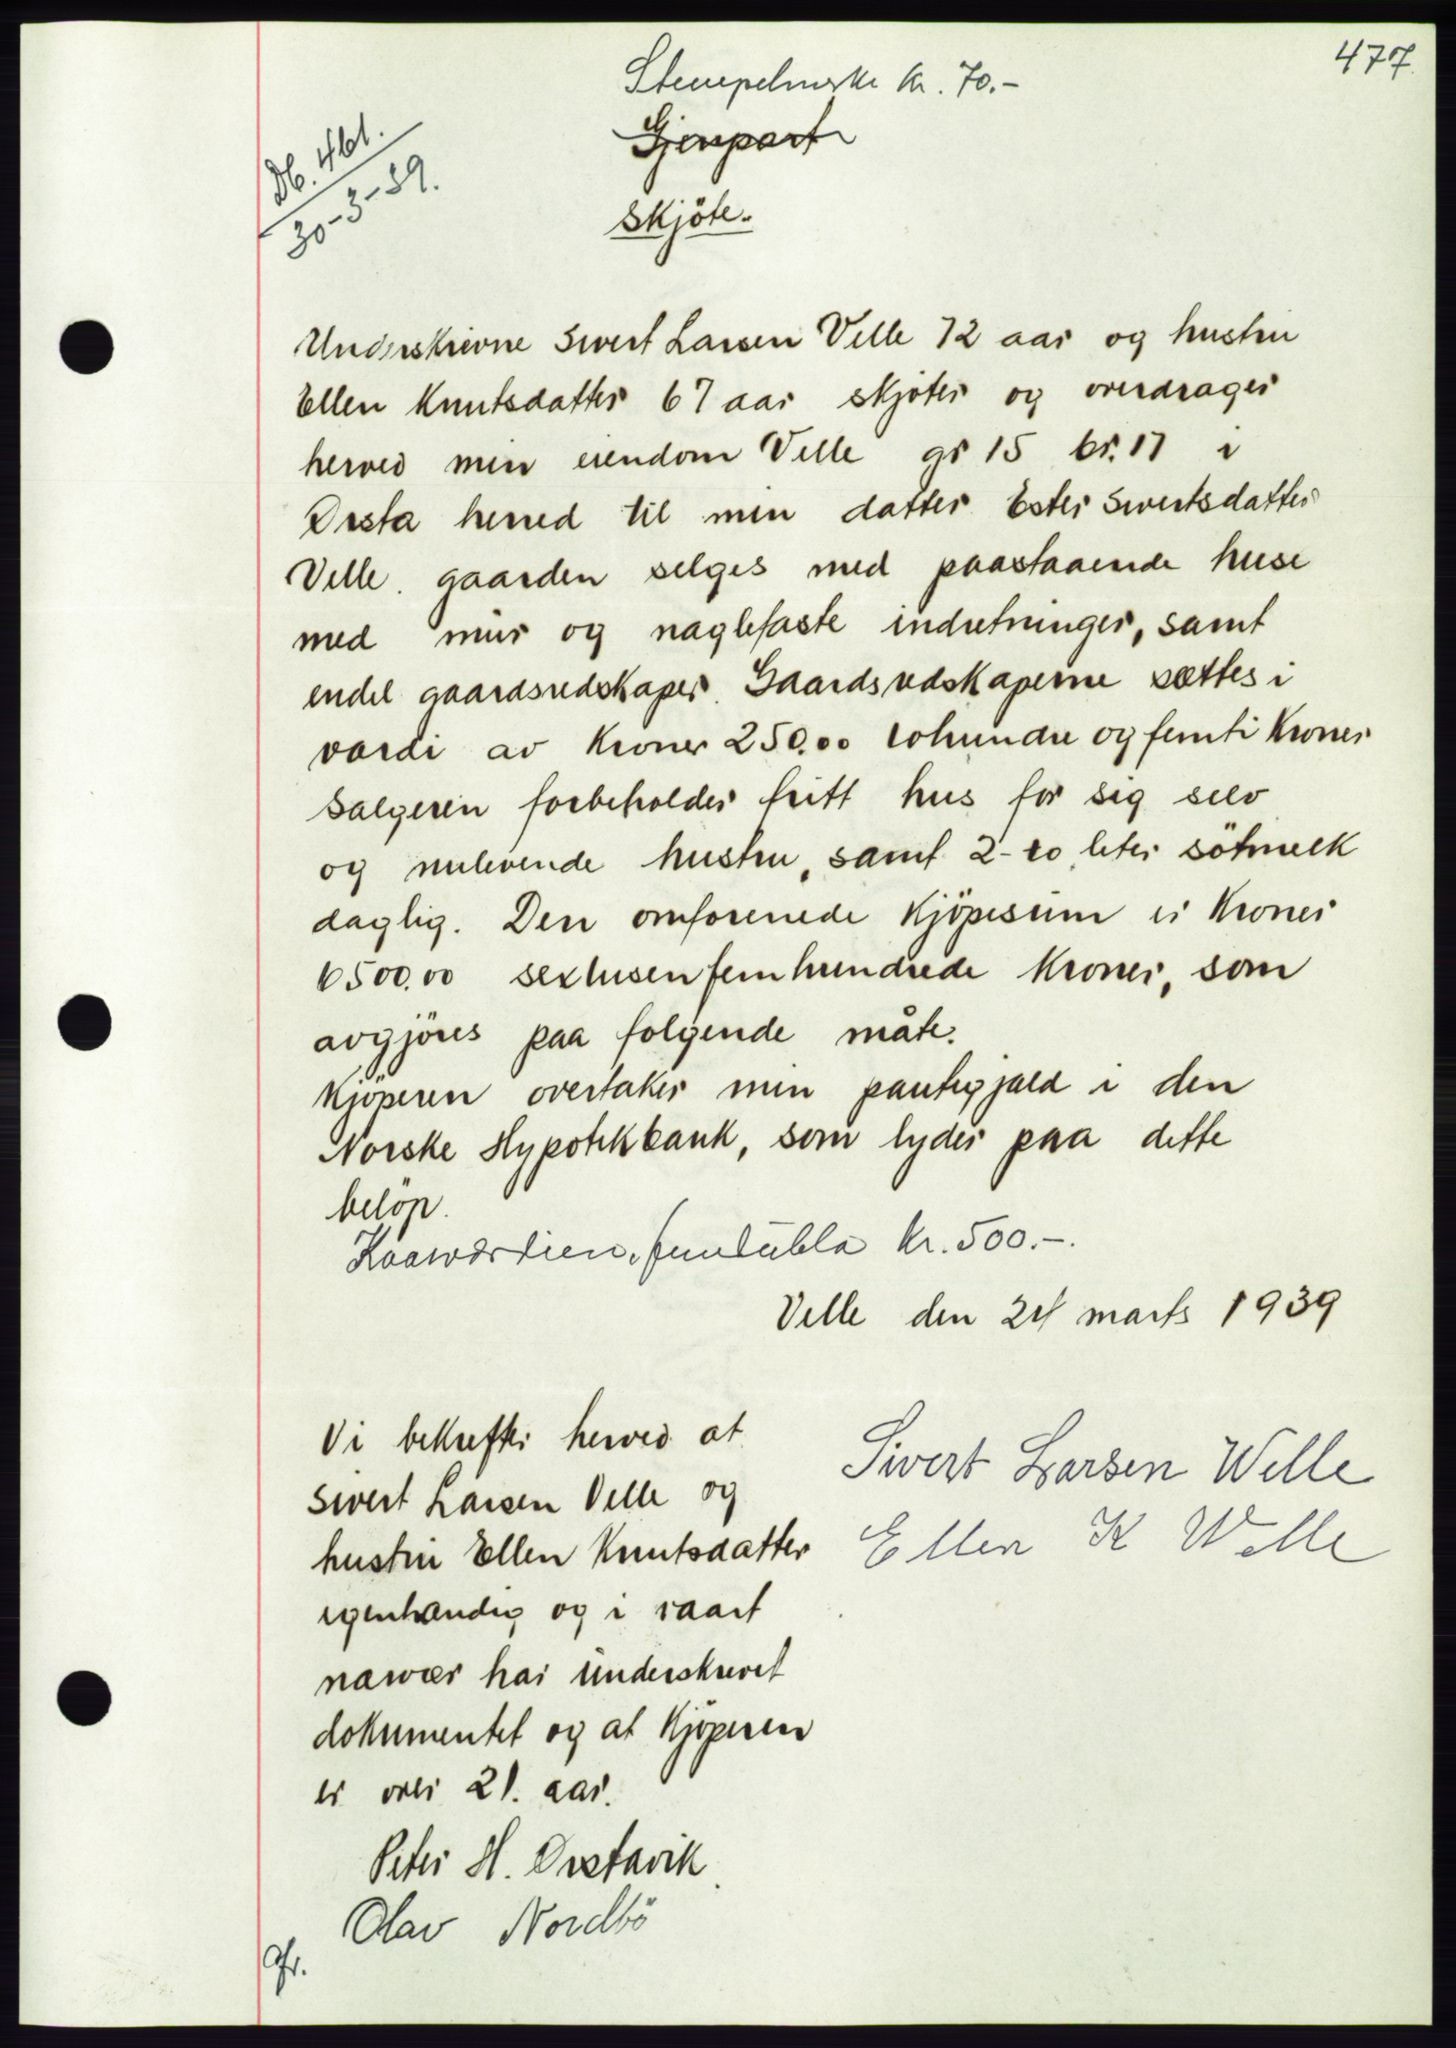 477
Stempelmerke kr. 70.-
Gjenpart
Db. 461.
30-3-39.
Skjöte.
Underskrevne Sivert Larsen Velle 72 aar og hustru
Ellen Knutsdatter 67 aar skjöter og overdrager
herved min eiendom Velle gr 15 br. 17 i
Örsta herred til min datter Ester Sivertsdatter
Velle. gaarden selges med paastaaende huse
med mur og naglefaste indretninger, samt
endel gaardsredskaper. Gaardsredskaperne sættes i
værdi av kroner 250.00 tohundre og femti kroner
Sælgeren forbeholder fritt hus for sig selv
og nulevende hustru, samt 2-to liter sötmelk
daglig. Den omforenede kjöpesum er kroner
6500.00 sextusenfemhundrede kroner, som
avgjöres paa følgende måte.
Kjöperen overtaker min pantegjæld i den
Norske Hypotekbank, som lyder paa dette
belöp.
Kaarværdien femdubla kr. 500.-.
Velle den 24 marts 1939
Vi bekrefter herved at
Sivert Larsen Velle og
hustru Ellen Knutsdatter
egenhændig og i vaart
nærvær har underskrevet
dokumentet og at kjöperen
er over 21. aar.
Sivert Larsen Welle
Ellen K Welle
Peter H. Örstavik
Olav Nordbö